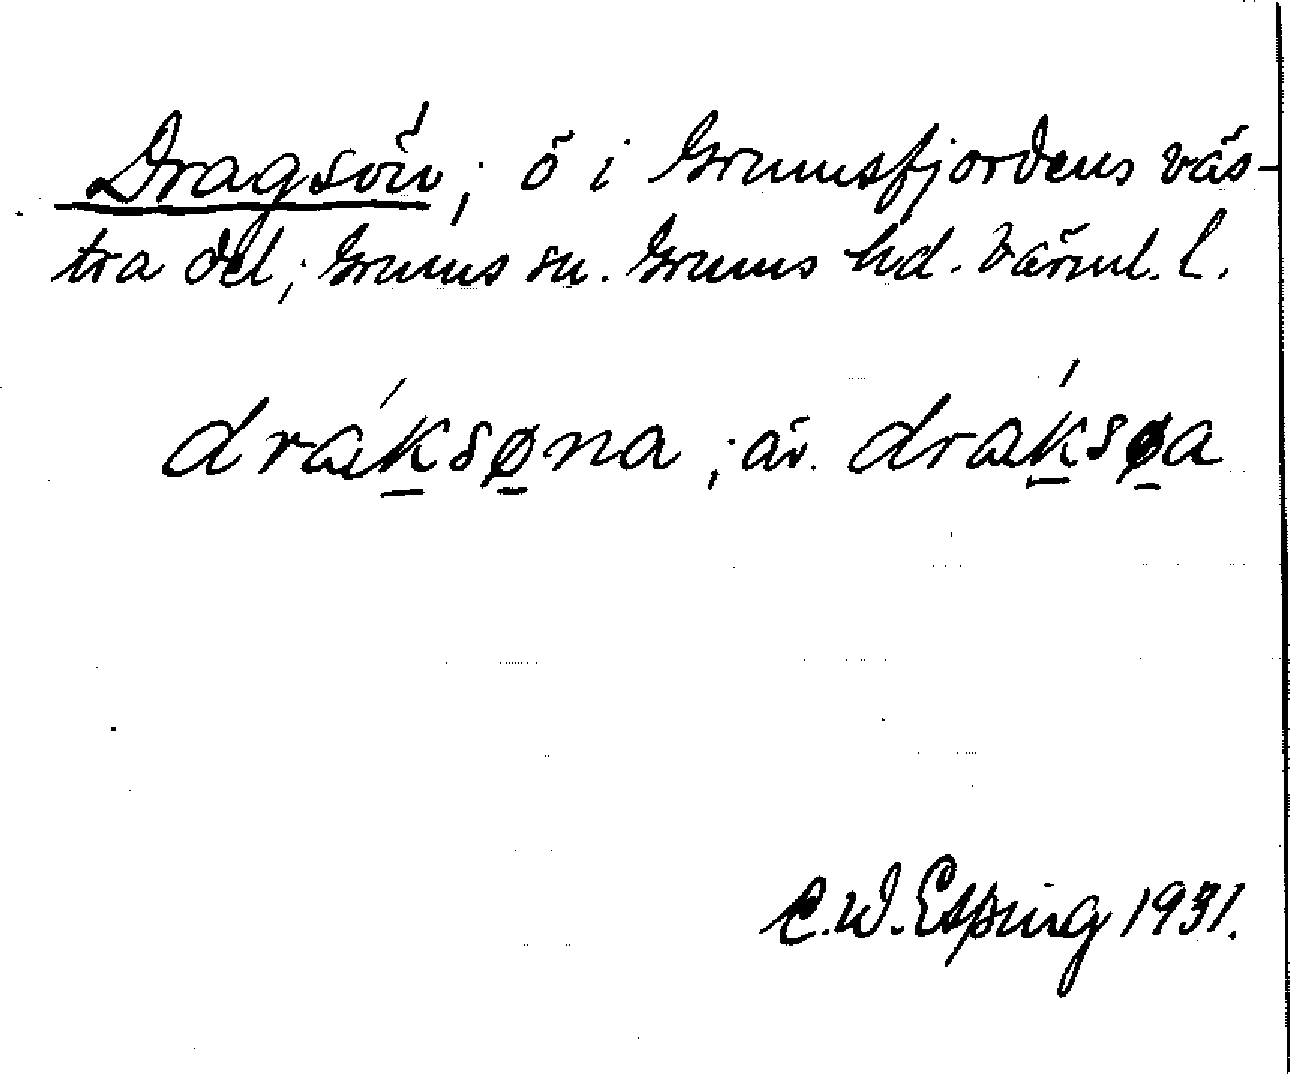 Dragsön; ö i Grumsfjordens väs-
tra del; Grums sn. Grums hd. Värml. l.
dráksøna; äv. dráksøa
C.W. Esping 1931.